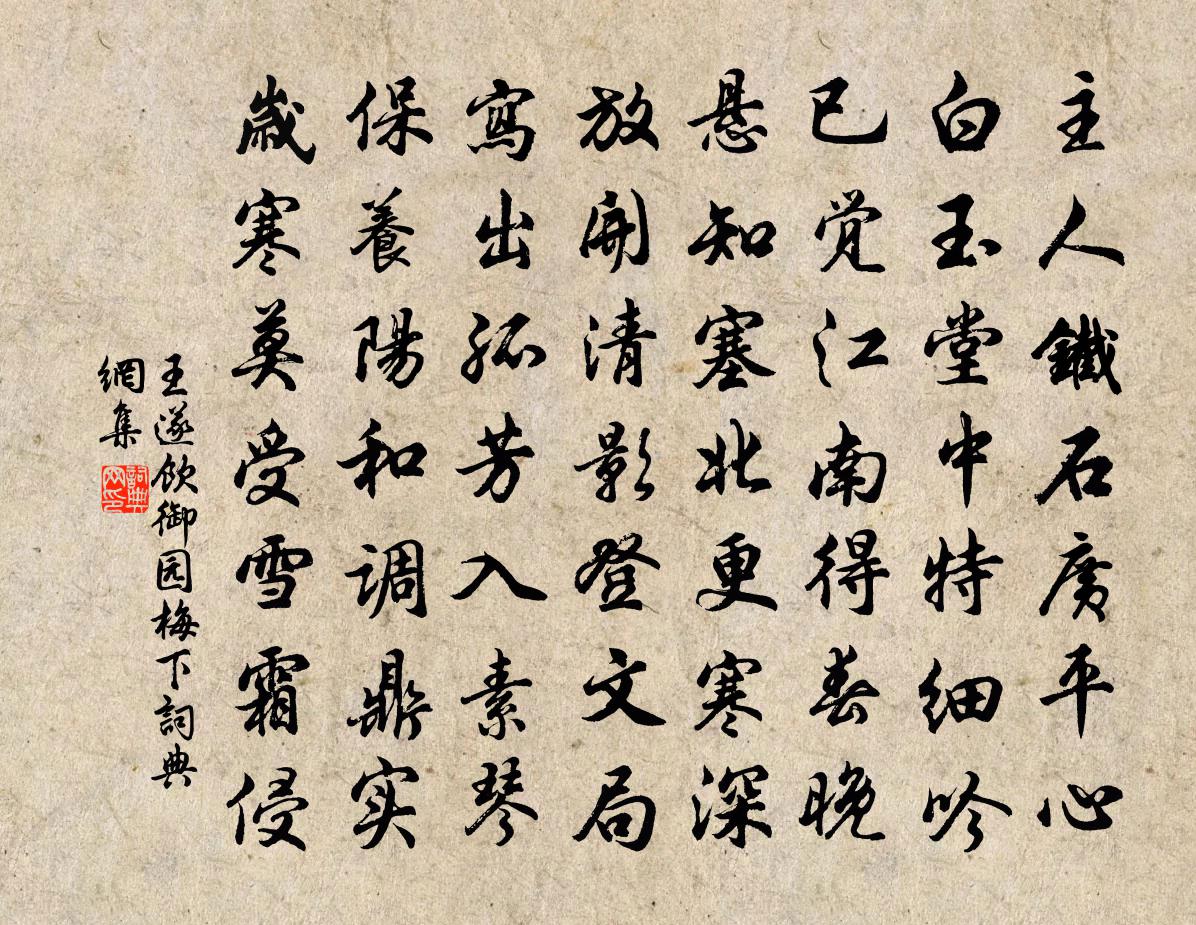 主人鐵石廣平心
白玉堂中特细吟
已觉江南得春晚
悬知塞北更寒深
放開清影登文局
寫出孤芳入素琴
保養陽和调鼎实
歲寒莫受雪霜侵
王遂飲御园梅下詞典
網集
詞典
网印